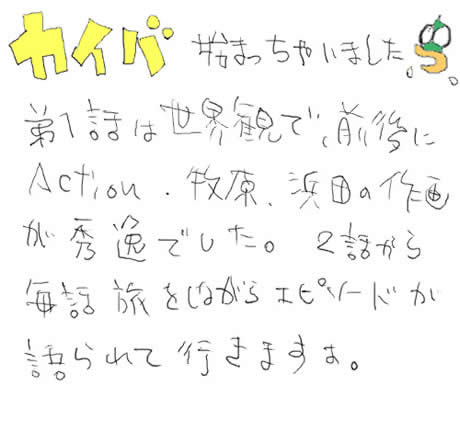 カイバ 始まっちゃいました。
第1話は世界観で、前後に
Action、牧原、浜田の作画
が秀逸でした。 2話から
毎話旅をしながらエピソードが
語られて行きますョ。